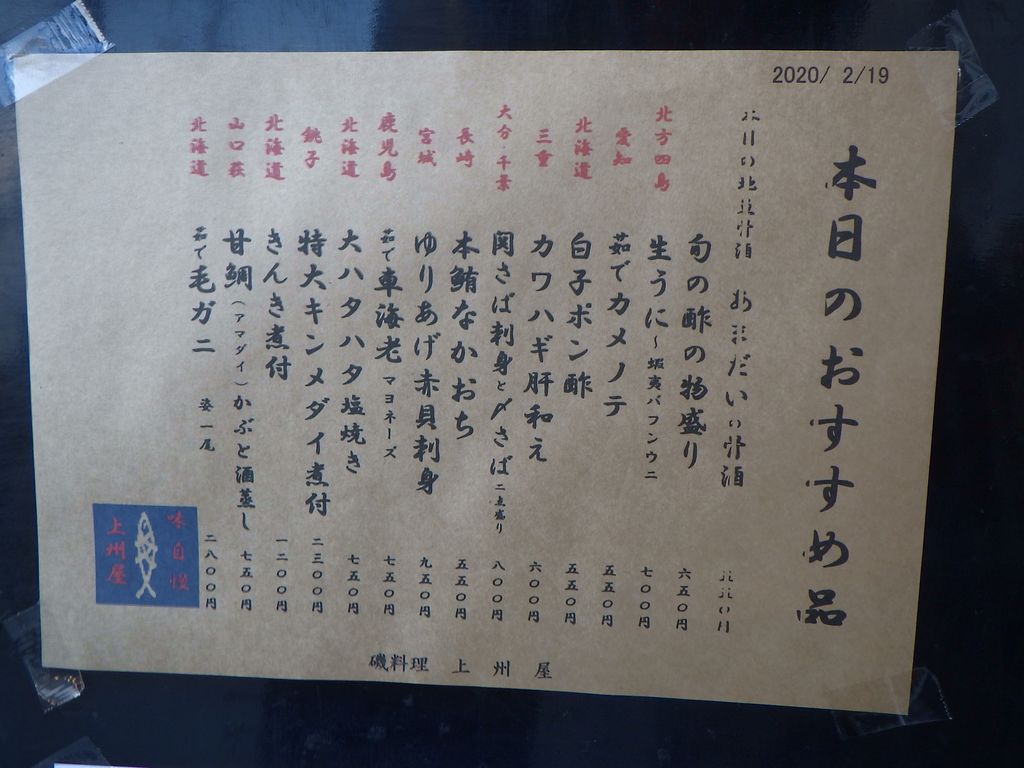 2020/ 2/19
本日のおすすめ品
本日の 骨酒 あまだいの骨酒
旬の酢の物盛り 六五〇円
北方四島 生うに～蝦夷バフンウニ 七〇〇円
愛知 茹でカメノテ 五五〇円
北海道 白子ポン酢 五五〇円
三重 カワハギ肝和え 六〇〇円
大分・千葉 関さば刺身と〆さば 二点盛り 八〇〇円
長崎 本鮪なかおち 五五〇円
宮城 ゆりあげ赤貝刺身 九五〇円
鹿児島 茹で車海老 マヨネーズ 七五〇円
北海道 大ハタハタ塩焼き 七五〇円
銚子 特大キンメダイ煮付 二三〇〇円
北海道 きんき煮付 一二〇〇円
山口萩 甘鯛（アマダイ）かぶと酒蒸し 七五〇円
北海道 茹で毛ガニ 姿一尾 二八〇〇円
味自慢
上州屋
磯料理 上州屋